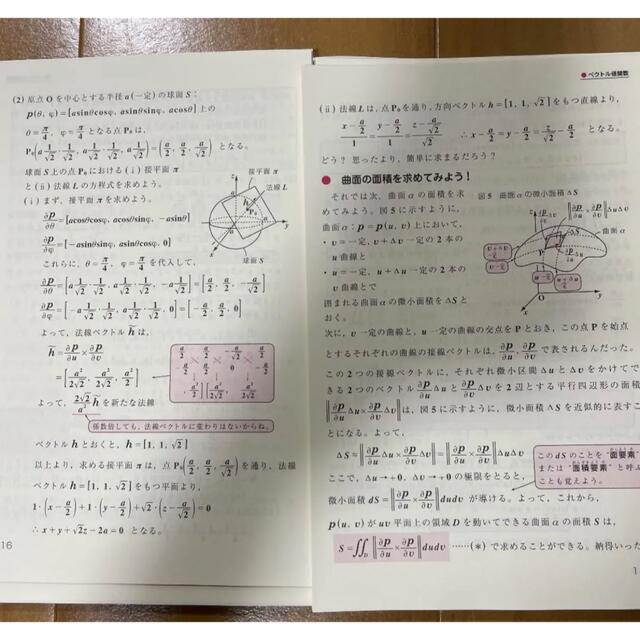 (2) 原点Oを中心とする半径a(一定)の球面S:
p(θ, φ)=[asinθcosφ, asinθsinφ, acosθ]上の
θ=π/4, φ=π/4 となる点P₀は,
P₀(a·1/√2·1/√2, a·1/√2·1/√2, a·1/√2)=(a/2, a/2, a/√2) となる。
球面S上の点P₀における(i)接平面π
と(ii)法線Lの方程式を求めよう。
(i)まず, 接平面πを求める。
∂p/∂θ=[acosθcosφ, acosθsinφ, −asinθ]
∂p/∂φ=[−asinθsinφ, asinθcosφ, 0]
これらに, θ=π/4, φ=π/4を代入して,
∂p/∂θ=[a·1/√2·1/√2, a·1/√2·1/√2, −a·1/√2]=[a/2, a/2, −a/√2]
∂p/∂φ=[−a·1/√2·1/√2, a·1/√2·1/√2, 0]=[−a/2, a/2, 0]
よって, 法線ベクトルh̃は,
h̃=∂p/∂u×∂p/∂v
=[a²/2√2, a²/2√2, a²/2]
よって, 2√2/a² h̃を新たな法線
係数倍しても, 法線ベクトルに変わりはないからね。
ベクトルhとおくと, h=[1, 1, √2]
以上より, 求める接平面πは, 点P₀(a/2, a/2, a/√2)を通り, 法線
ベクトルh=[1, 1, √2]をもつ平面より,
1·(x−a/2)+1·(y−a/2)+√2·(z−a/√2)=0
∴x+y+√2z−2a=0 となる。
16
接平面π
法線L
球面S
●ベクトル値関数
(ii)法線Lは, 点P₀を通り, 方向ベクトルh=[1, 1, √2]をもつ直線より,
x−a/2/1=y−a/2/1=z−a/√2/√2 ∴x−a/2=y−a/2=z/√2−a/2 となる。
どう？思ったより, 簡単に求まるだろう？
● 曲面の面積を求めてみよう！
それでは次, 曲面αの面積を求
めてみよう。図5に示すように,
曲面α:p=p(u, v)上において,
・v=一定, v+Δv一定の2本の
u曲線と
・u=一定, u+Δu一定の2本の
v曲線とで
囲まれる曲面αの微小面積をΔSと
おく。
図5 曲面αの微小面積ΔS
曲面α
次に, v一定の曲線と, u一定の曲線の交点をPとおき, この点Pを始点
とするそれぞれの曲線の接線ベクトルは, ∂p/∂u, ∂p/∂vで表されるんだった。
この2つの接線ベクトルに, それぞれ微小区間ΔuとΔvをかけてで
きる2つのベクトル∂p/∂uΔuと∂p/∂vΔvを2辺とする平行四辺形の面積
‖∂p/∂uΔu×∂p/∂vΔv‖は, 図5に示すように, 微小面積ΔSを近似的に表すこ
とになる。よって,
ΔS≒‖∂p/∂uΔu×∂p/∂vΔv‖=‖∂p/∂u×∂p/∂v‖ΔuΔv
ここで, Δu→+0, Δv→+0の極限をとると,
このdSのことを“面要素”
または“面積要素”と呼ぶ
ことも覚えよう。
微小面積dS=‖∂p/∂u×∂p/∂v‖dudvが導ける。よって, これから,
p(u, v)がuv平面上の領域Dを動いてできる曲面αの面積Sは,
S=∬D‖∂p/∂u×∂p/∂v‖dudv ……(*)で求めることができる。納得いった